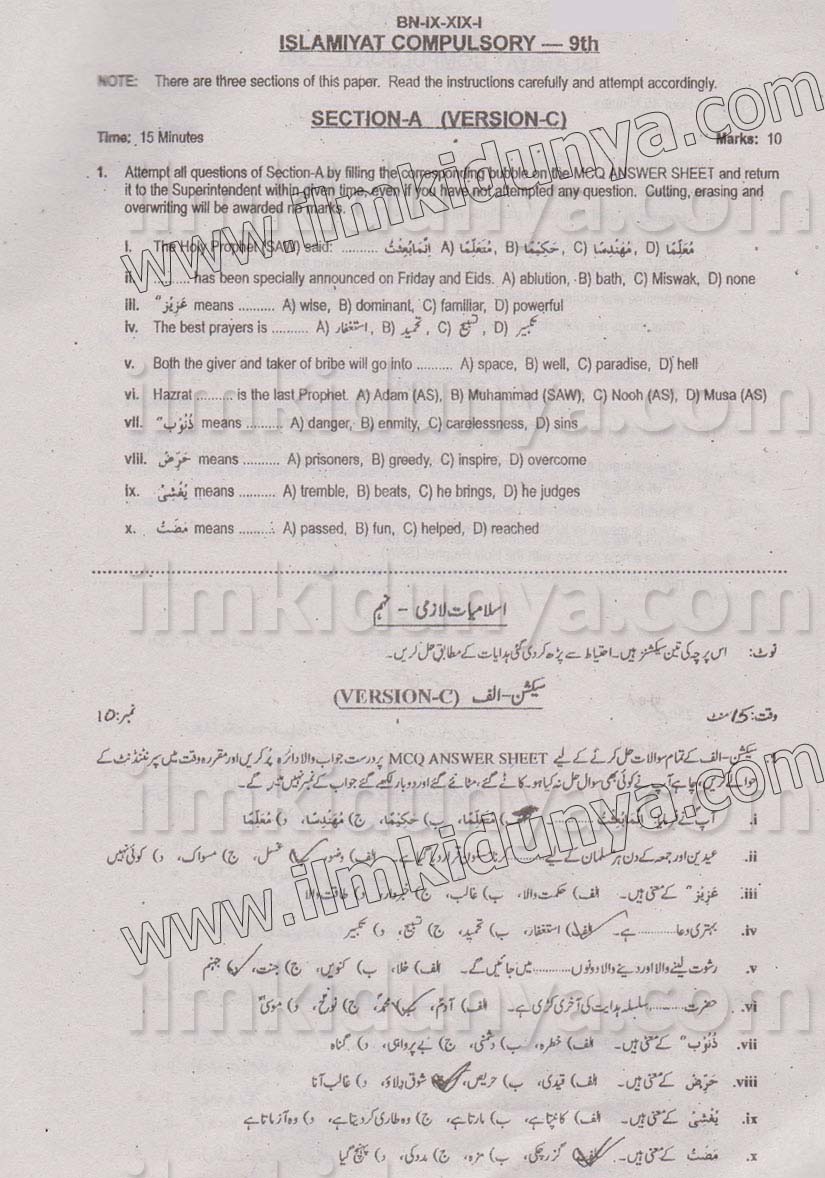 BN-IX-XIX-I
ISLAMIYAT COMPULSORY — 9th
NOTE: There are three sections of this paper. Read the instructions carefully and attempt accordingly.
SECTION-A (VERSION-C)
Time: 15 Minutes Marks: 10
1. Attempt all questions of Section-A by filling the corresponding bubble on the MCQ ANSWER SHEET and return
it to the Superintendent within given time, even if you have not attempted any question. Cutting, erasing and
overwriting will be awarded no marks.
i. The Holy Prophet (SAW) said: .......... اِنَّمَابُعِثْتُ A) مُتَعَلِّمًا, B) حَكِيْمًا, C) مُهَنْدِسًا, D) مُعَلِّمًا
ii. .......... has been specially announced on Friday and Eids. A) ablution, B) bath, C) Miswak, D) none
iii. عَزِيْزٌ means .......... A) wise, B) dominant, C) familiar, D) powerful
iv. The best prayers is .......... A) استغفار, B) تحمید, C) تسبیح, D) تکبیر
v. Both the giver and taker of bribe will go into .......... A) space, B) well, C) paradise, D) hell
vi. Hazrat .......... is the last Prophet. A) Adam (AS), B) Muhammad (SAW), C) Nooh (AS), D) Musa (AS)
vii. ذُنُوْبٌ means .......... A) danger, B) enmity, C) carelessness, D) sins
viii. حَرِّضْ means .......... A) prisoners, B) greedy, C) inspire, D) overcome
ix. يُغْشِىْ means .......... A) tremble, B) beats, C) he brings, D) he judges
x. مَضَتْ means .......... A) passed, B) fun, C) helped, D) reached
اسلامیات لازمی - نہم
نوٹ: اس پرچہ کی تین سیکشنز ہیں۔ احتیاط سے پڑھ کر دی گئی ہدایات کے مطابق حل کریں۔
سیکشن-الف (VERSION-C)
وقت: 15 منٹ نمبر: 10
سیکشن-الف کے تمام سوالات حل کرنے کے لیے MCQ ANSWER SHEET پر درست جواب والا دائرہ پُر کریں اور مقررہ وقت میں سپرنٹنڈنٹ کے
حوالے کریں، چاہے آپ نے کوئی بھی سوال حل نہ کیا ہو۔ کاٹے گئے، مٹائے گئے اور دوبارہ لکھے گئے جواب کے نمبر نہیں ملیں گے۔
i. آپ نے فرمایا اِنَّمَابُعِثْتُ الف) مُتَعَلِّمًا، ب) حَكِيْمًا، ج) مُهَنْدِسًا، د) مُعَلِّمًا
ii. عیدین اور جمعہ کے دن ہر مسلمان کے لیے .......... کرنا مسنون قرار دیا گیا ہے۔ الف) وضو، ب) غسل، ج) مسواک، د) کوئی نہیں
iii. عَزِيْزٌ کے معنی ہیں۔ الف) حکمت والا، ب) غالب، ج) خبردار، د) طاقت والا
iv. بہتری دعا .......... ہے۔ الف) استغفار، ب) تحمید، ج) تسبیح، د) تکبیر
v. رشوت لینے والا اور دینے والا دونوں .......... میں جائیں گے۔ الف) خلا، ب) کنویں، ج) جنت، د) جہنم
vi. حضرت .......... سلسلہ ہدایت کی آخری کڑی ہے۔ الف) آدمؑ، ب) محمدؐ، ج) نوحؑ، د) موسیٰؑ
vii. ذُنُوْبٌ کے معنی ہیں۔ الف) خطرہ، ب) دشمنی، ج) بے پرواہی، د) گناہ
viii. حَرِّضْ کے معنی ہیں۔ الف) قیدی، ب) حریص، ج) شوق دلاؤ، د) غالب آنا
ix. يُغْشِىْ کے معنی ہیں۔ الف) کانپتا ہے، ب) مارتا ہے، ج) وہ طاری کر دیتا ہے، د) وہ آزماتا ہے
x. مَضَتْ کے معنی ہیں۔ الف) گزر چکی، ب) مزہ، ج) مدد کی، د) پہنچ گیا
www.ilmkidunya.com
www.ilmkidunya.com
ilmkidunya.com
ilmkidunya.com
ilmkidunya.com
ilmkidunya.com
ilmkidunya.com